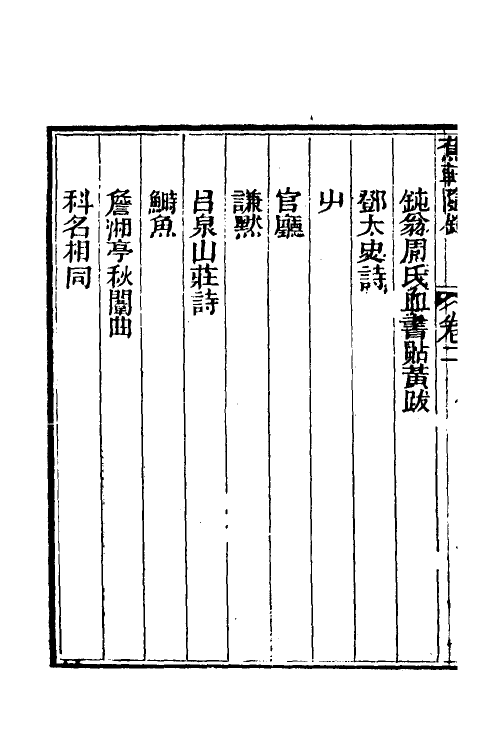 蕉軒隨錄
卷二
鈍翁周氏血書貼黃跋
鄧太史詩
屮
官廳
謙默
呂泉山莊詩
鰣魚
詹湘亭秋闈曲
科名相同